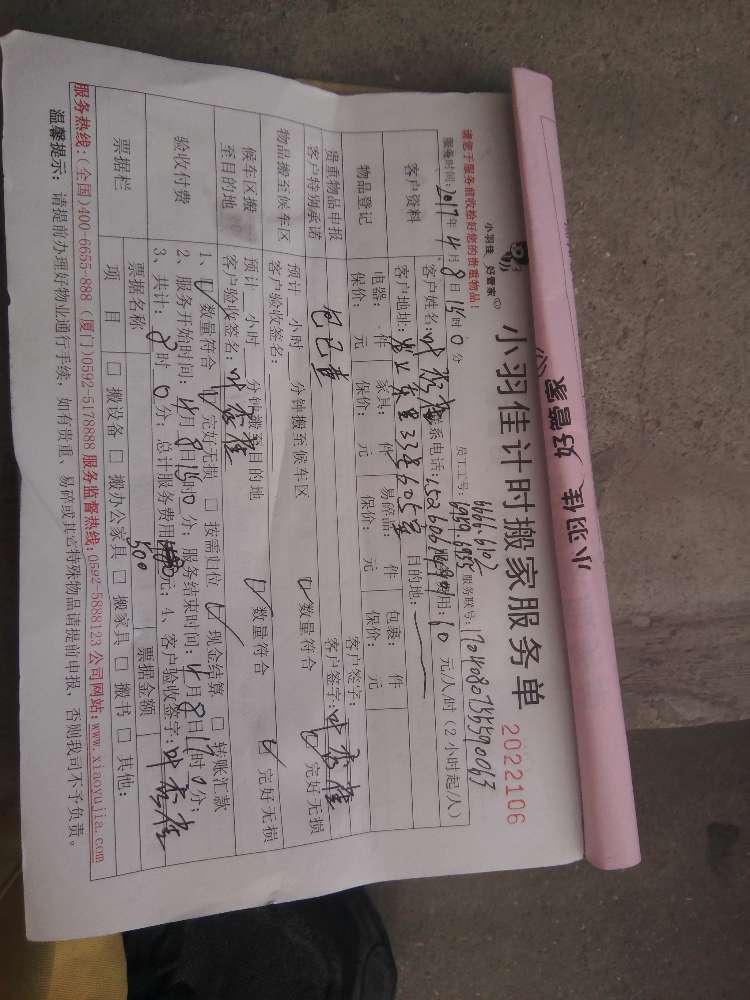 小羽佳 好管家
小羽佳 好管家 ®
小羽佳计时搬家服务单 2022106
请您于服务前收捡好您的贵重物品!
员工工号: 服务联号:
服务时间: 2017年 4月 8日 15时 0分
客户资料 客户姓名: 联系电话: 服务费用: 60 元/人/时 (2小时起/人)
客户地址: 目的地:
物品登记 电器: 件 家具: 件 易碎品: 件 包裹: 件
保价: 元 保价: 元 保价: 元 保价: 元
贵重物品申报
客户特别承诺 包已查 客户签字:
客户签字:
物品搬至候车区 预计 小时 分钟搬至候车区 数量符合 完好无损
客户验收签名:
候车区搬至目的地 预计 小时 分钟搬至目的地 数量符合 完好无损
客户验收签名:
验收付费 1、 数量符合 完好无损 按需归位 现金结算 转账汇款
2、服务开始时间: 4月 8日 15时0分; 服务结束时间: 4月 8日 17时0分;
3、共计: 8时 0分; 总计服务费用 500 元; 4、客户验收签字:
票据栏 票据名称 票据金额
项 目 搬设备 搬办公家具 搬家具 搬书 其他:
服务热线: (全国)400-6655-888 (厦门)0592-5178888 服务监督热线:0592-5888123 公司网站:www.xiaoyujia.com
温馨提示: 请提前办理好物业通行手续, 如有贵重、易碎或其它特殊物品请提前申报, 否则我司不予负责。